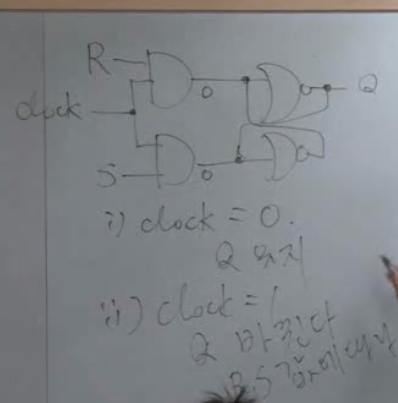 R
Q
clock
0
S
0
i) clock = 0.
Q 유지
ii) clock = 1
Q 바뀐다
R,S 값에 따라